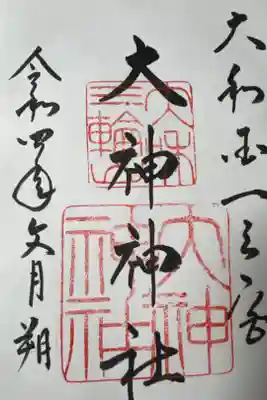 大和国一之宮
三輪
大神神社
大神神社
令和四年文月朔